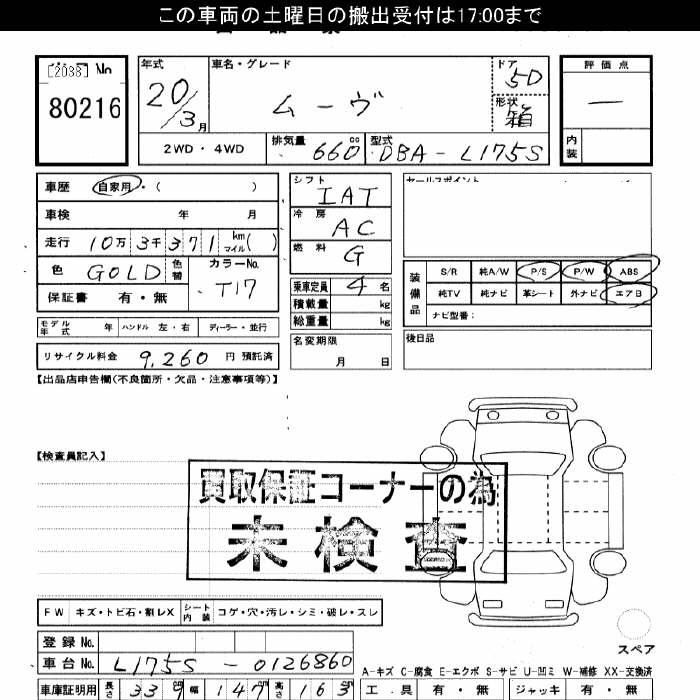 この車両の土曜日の搬出受付は17:00まで
[2088] No
80216
年式 車名・グレード ドア 評価点
20/3月 ムーヴ 5D 形状 箱 —
2WD・4WD 排気量 660cc 型式 DBA-L175S 内装
車歴 自家用・( )
車検 年 月
走行 10万3千371 km マイル( )
色 GOLD 色替 カラーNo. T17
保証書 有・無
シフト IAT
冷房 AC
燃料 G
乗車定員 4名
積載量 kg
総重量 kg
セールスポイント
装備品 S/R 純A/W P/S P/W ABS
純TV 純ナビ 革シート 外ナビ エアB
ナビ型番:
モデル年式 年 ハンドル 左・右 ディーラー・並行
名変期限 月 日
後日品
リサイクル料金 9,260円 預託済
【出品店申告欄(不良箇所・欠品・注意事項等)】
【検査員記入】
買取保証コーナーの為
未検査
FW キズ・トビ石・割レX シート内装 コゲ・穴・汚レ・シミ・破レ・スレ
登録No.
車台No. L175S-0126860
スペア
A-キズ C-腐食 E-エクボ S-サビ U-凹ミ W-補修 XX-交換済
車庫証明用 長さ 339 幅 147 高さ 163 工具 有・無 ジャッキ 有・無